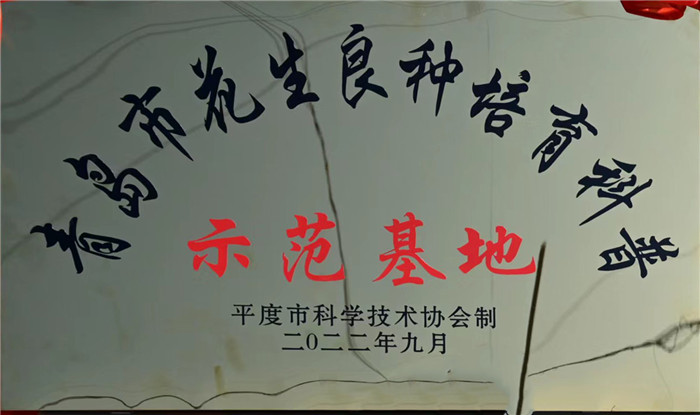 青岛市花生良种培育科普
示范基地
平度市科学技术协会制
二〇二二年九月